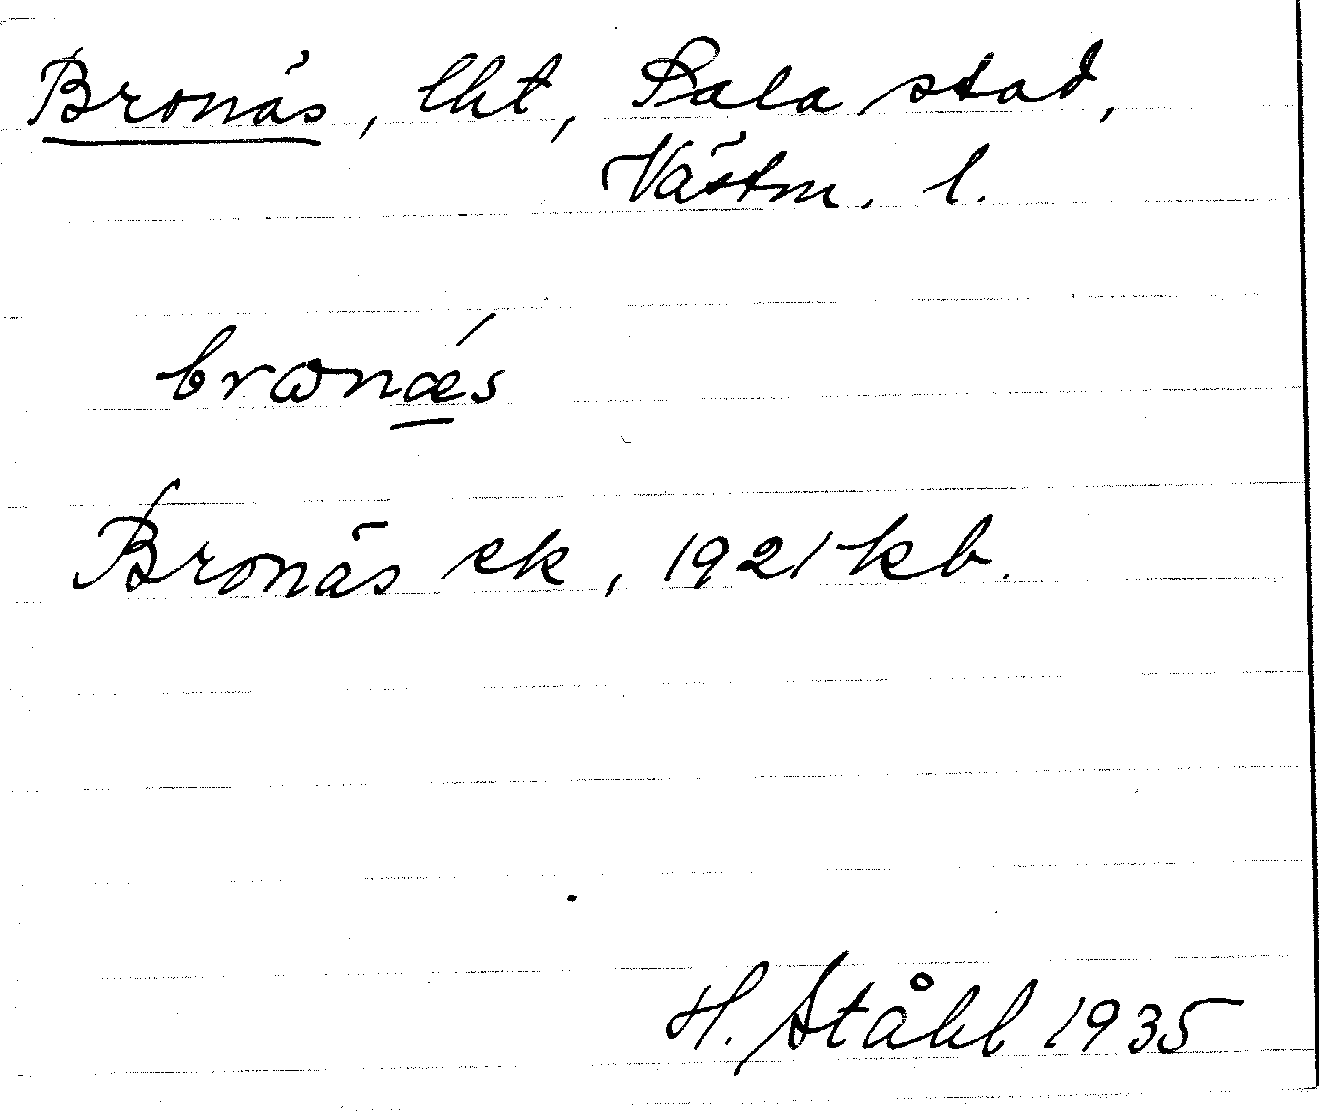 Bronäs, lht, Sala stad,
Västm. l.
brωnǽs
Bronäs ek, 1921 kb.
H. Ståhl 1935